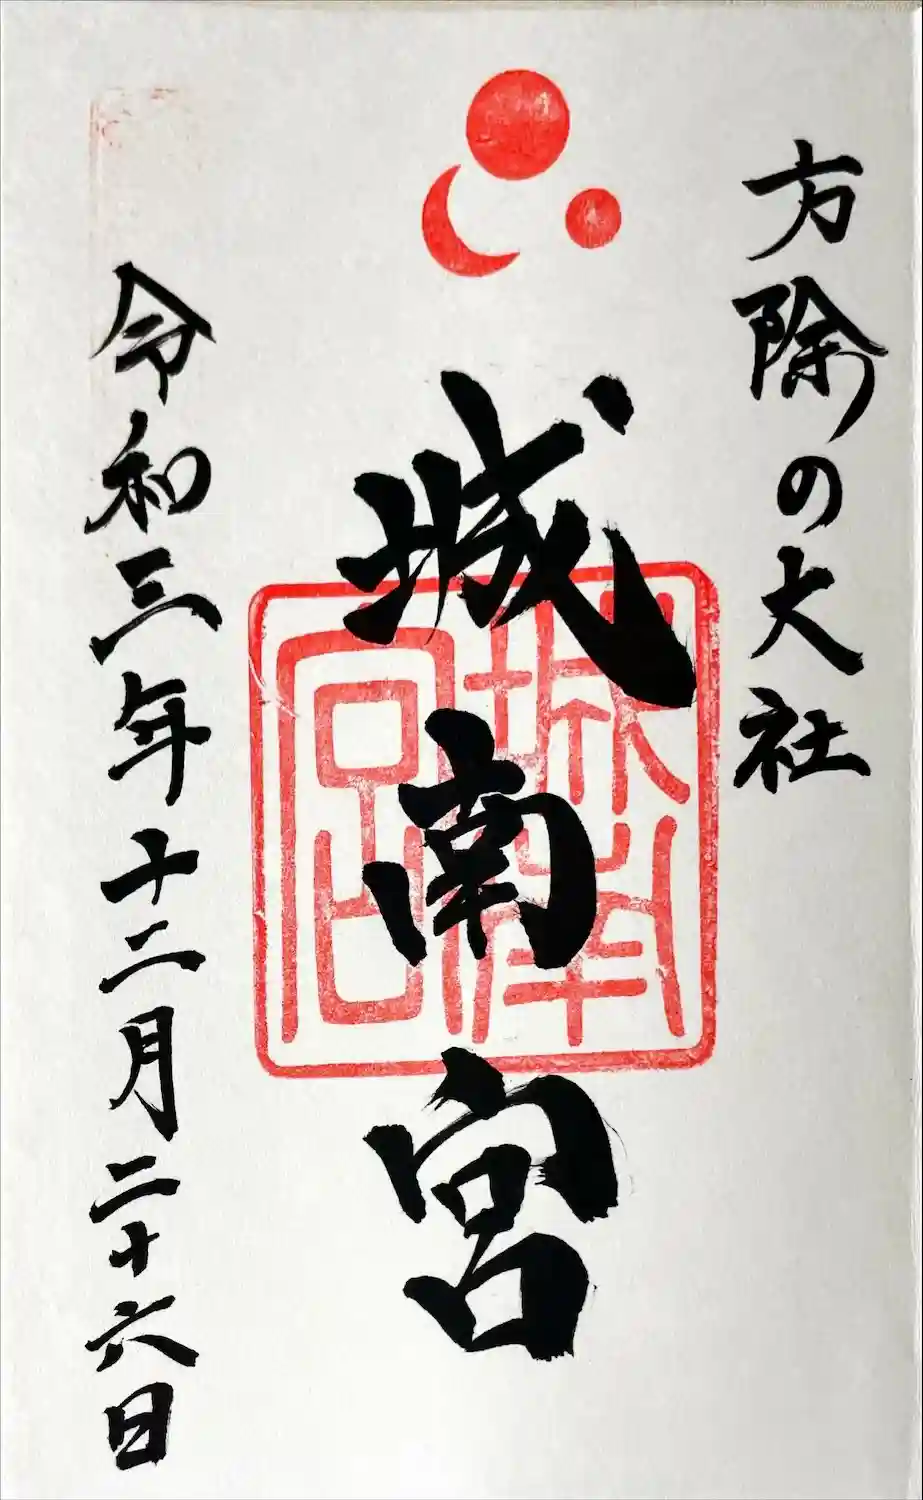 方除の大社
城南宮
城南宮
令和三年十二月二十六日